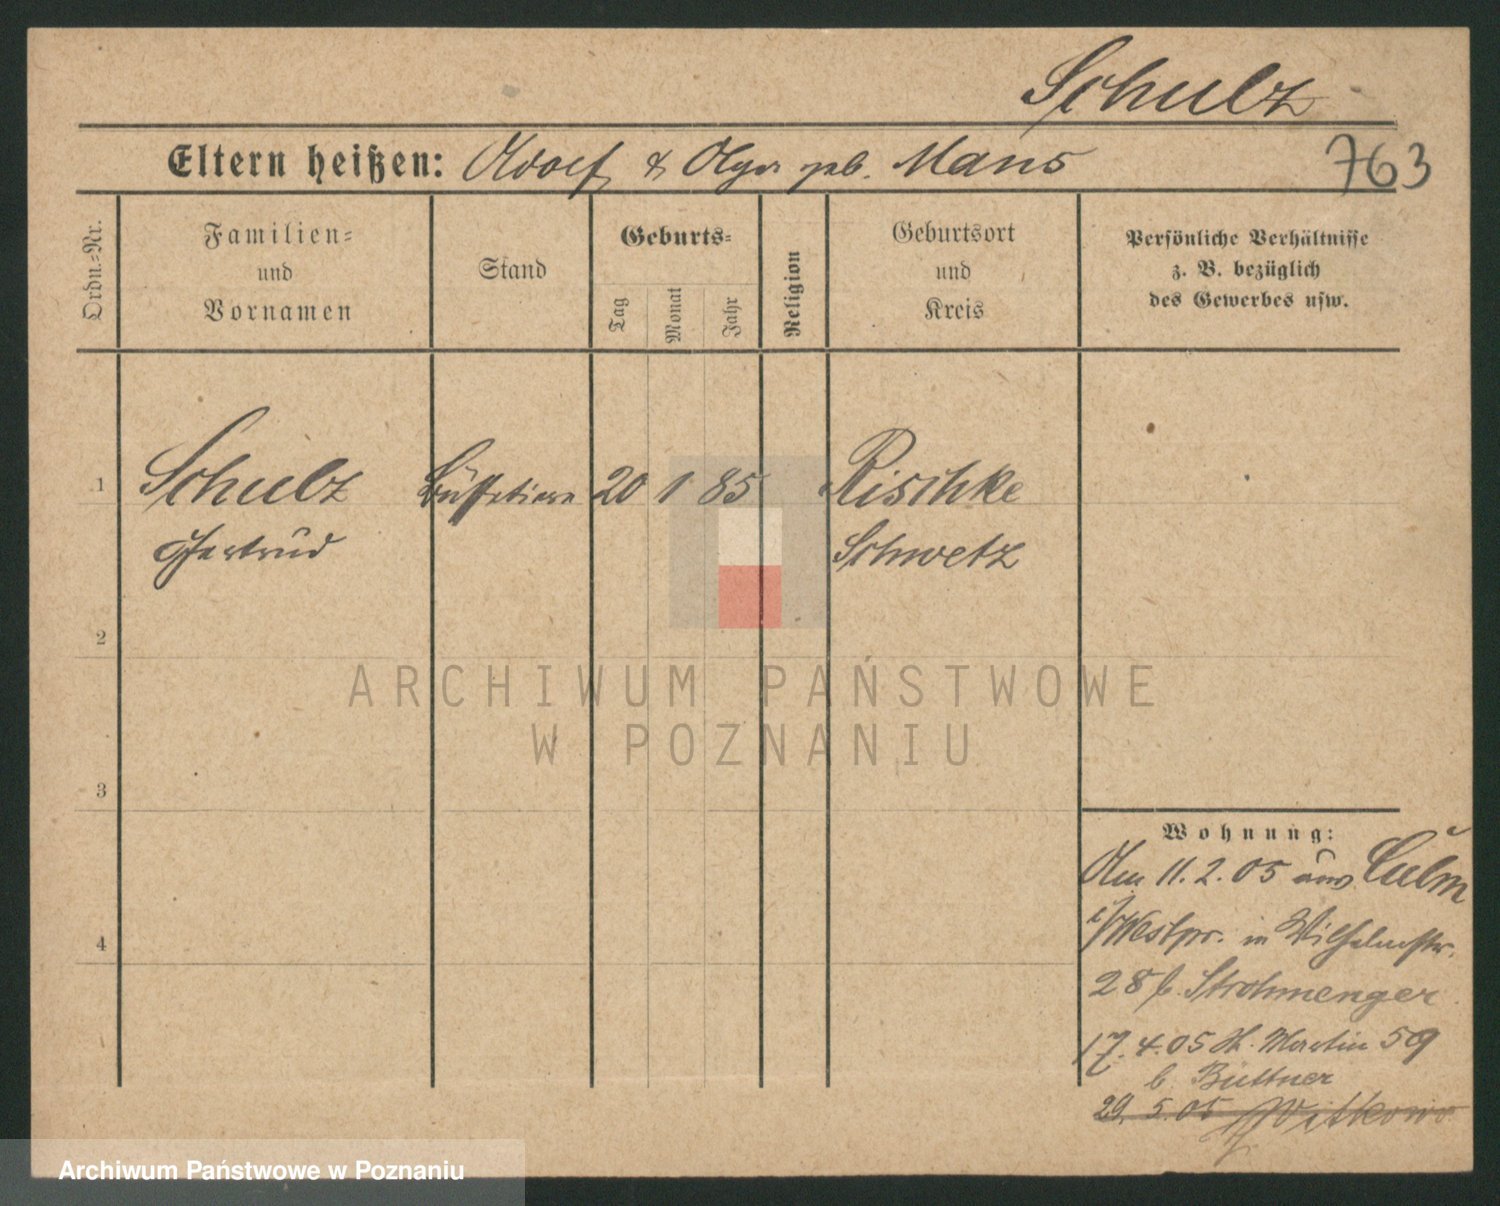 Schulz
Eltern heißen: Adolf & Olga geb. Mans
763
Ordn.-Nr.
Familien-
und
Vornamen
Stand
Geburts-
Tag
Monat
Jahr
Religion
Geburtsort
und
Kreis
Persönliche Verhältnisse
z. B. bezüglich
des Gewerbes usw.
1 Schulz Büffetiere 20 1 85 Rischke
Gertrud Schwetz
2
ARCHIWUM PAŃSTWOWE
W POZNANIU
3
Wohnung:
Am 11.2.05 aus Culm
i/Westpr. in Wilhelmstr.
4
28 b. Strohmenger
17.4.05 St. Martin 59
b. Büttner
29.5.05 Witkowo
Archiwum Państwowe w Poznaniu